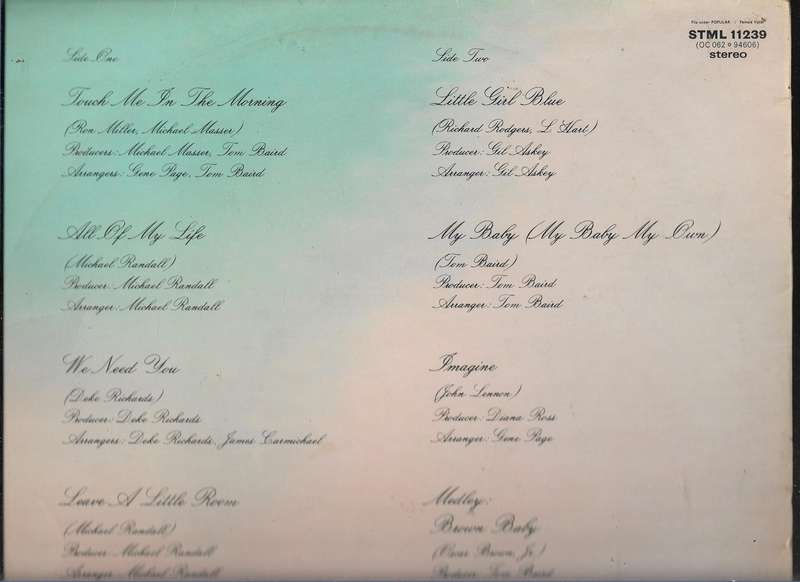 File under POPULAR : Female Vocal
STML 11239
(OC 062 o 94606)
stereo
Side One
Touch Me In The Morning
(Ron Miller, Michael Masser)
Producers: Michael Masser, Tom Baird
Arrangers: Gene Page, Tom Baird
All Of My Life
(Michael Randall)
Producer: Michael Randall
Arranger: Michael Randall
We Need You
(Deke Richards)
Producer: Deke Richards
Arrangers: Deke Richards, James Carmichael
Leave A Little Room
(Michael Randall)
Producer: Michael Randall
Arranger: Michael Randall
Side Two
Little Girl Blue
(Richard Rodgers, L. Hart)
Producer: Gil Askey
Arranger: Gil Askey
My Baby (My Baby My Own)
(Tom Baird)
Producer: Tom Baird
Arranger: Tom Baird
Imagine
(John Lennon)
Producer: Diana Ross
Arranger: Gene Page
Medley:
Brown Baby
(Oscar Brown, Jr.)
Producer: Tom Baird